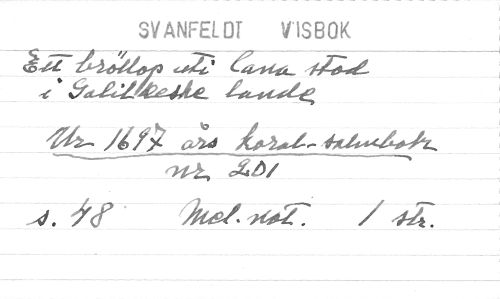 SVANFELDT VISBOK
Ett bröllop uti Cana stod
i Galileeske lande
Ur 1697 års koral-psalmbok
nr 201
s. 48 Mel. not. 1 str.